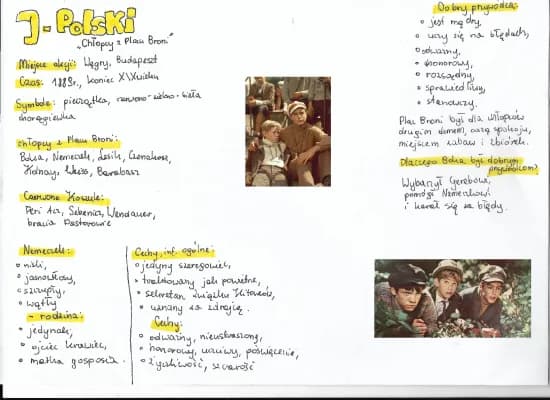 J-Polski
"Chłopcy z Placu Broni"
Miejsce akcji: Węgry, Budapeszt
Czas: 1889r., koniec XIXwieku
Symbole: pieczątka, czerwono-zielono-biała
chorągiewka
Chłopcy z Placu Broni:
Boka, Nemeczek, Lesik, Czonakosz,
Kolnay, Weiss, Barabasz
Czerwone Koszule:
Feri Acz, Sebenicz, Wendauer,
bracia Pastorowie
Nemeczek:
niski,
jasnowłosy,
szczupły,
wątły
- rodzina:
jedynak,
ojciec krawiec,
matka gosposia.
Cechy, inf. ogólne:
jedyny szeregowiec,
traktowany jak powietrze,
sekretarz związku Kitowców,
uznany za zdrajcę.
Cechy:
odważny, nieustraszony,
honorowy, uczciwy, poświęcenie,
życzliwość, szczerość
Dobry przywódca:
jest mądry,
uczy się na błędach,
odważny,
honorowy,
rozsądny,
sprawiedliwy,
stanowczy.
Plac Broni był dla chłopców
drugim domem, oazą spokoju,
miejscem zabaw i zbiórek.
Dlaczego Boka był dobrym
przywódcom?
Wybaczył Gerebowi,
pomógł Nemeczkowi
i karał się za błędy.